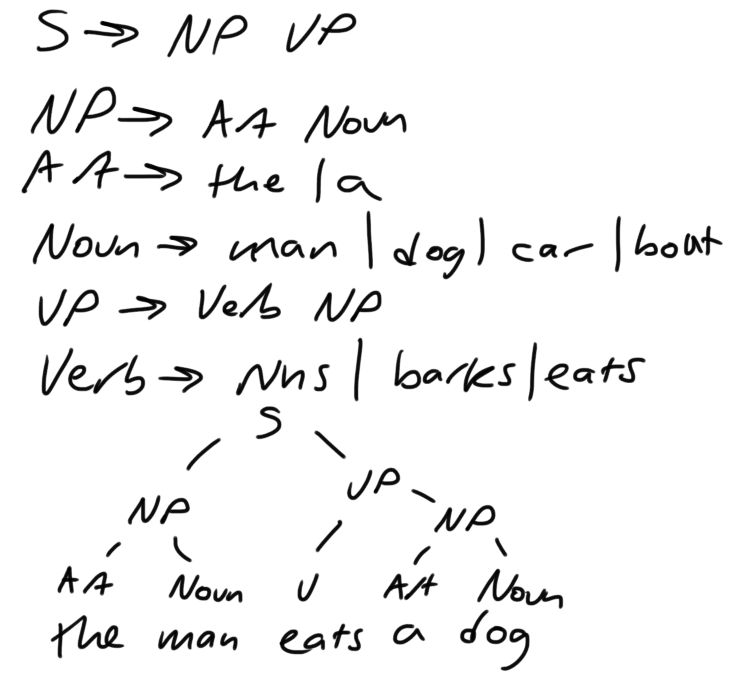 S → NP VP
NP → AA Noun
AA → the | a
Noun → man | dog | car | boat
VP → Verb NP
Verb → | barks | eats
S
NP VP NP
AA Noun V AA Noun
the man eats a dog